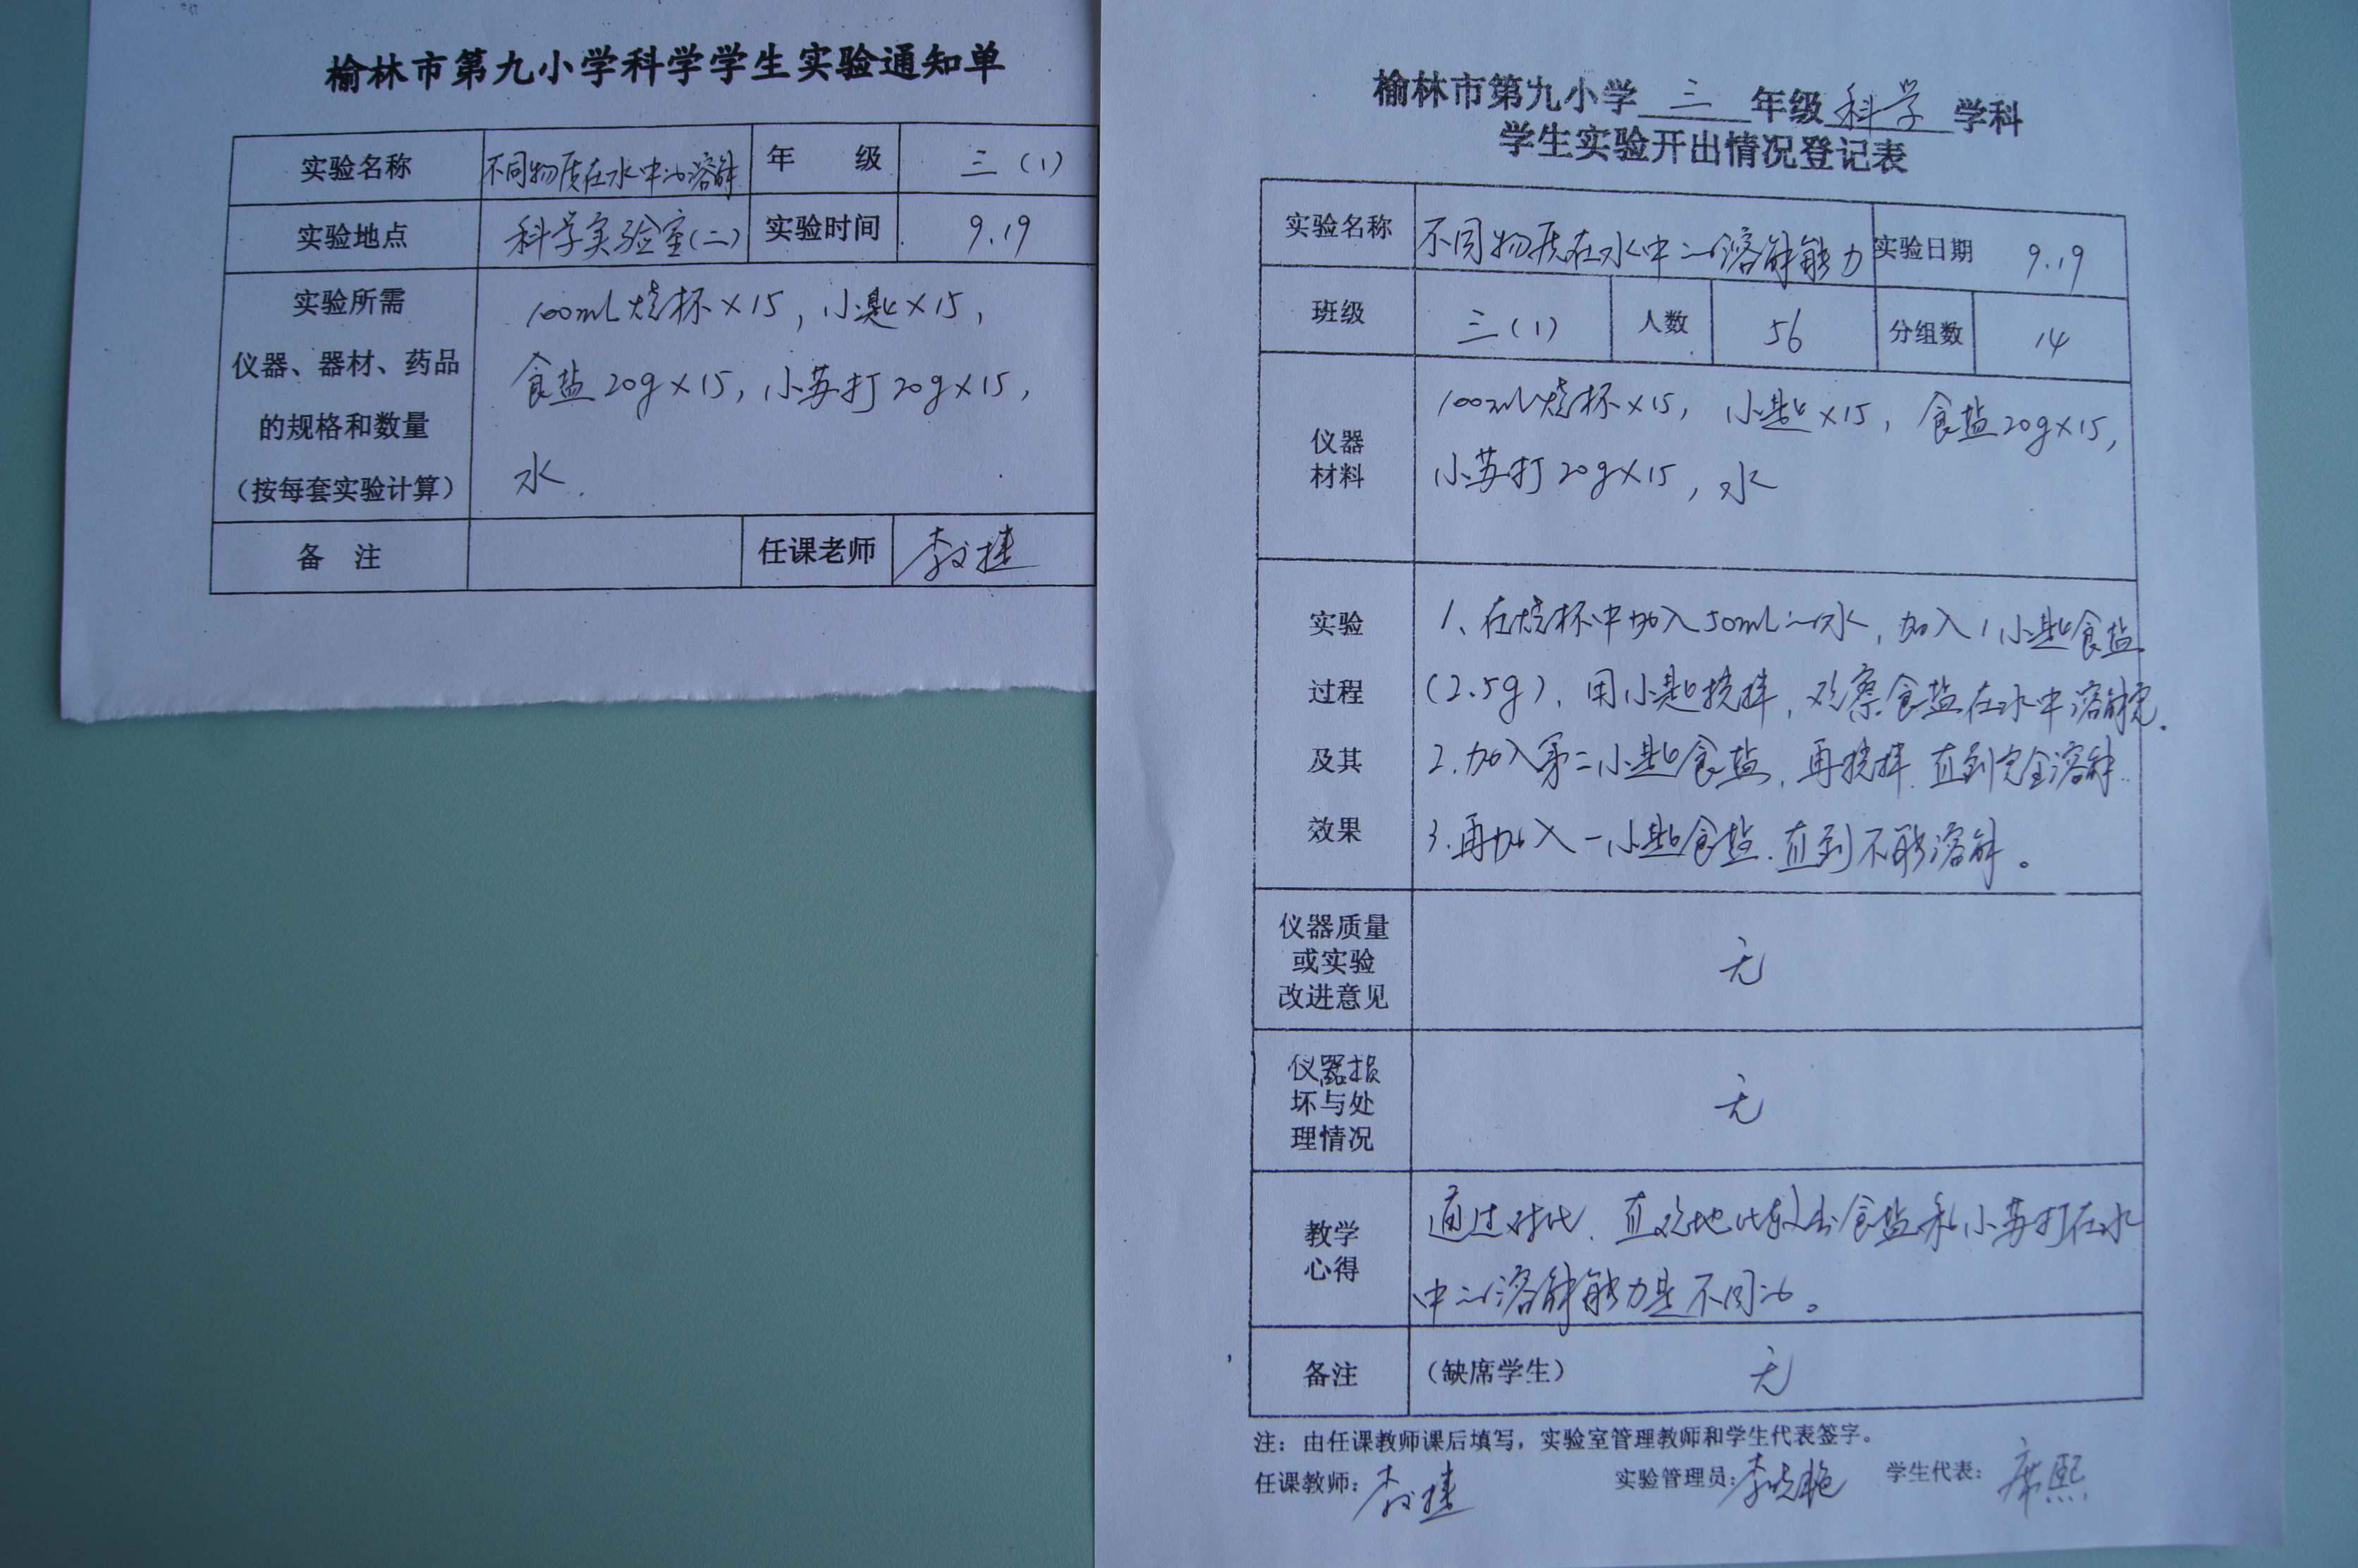 榆林市第九小学科学学生实验通知单
实验名称 不同物质在水中的溶解 年 级 三（1）
实验地点 科学实验室（二） 实验时间 9.19
实验所需
仪器、器材、药品
的规格和数量
（按每套实验计算）
100mL烧杯×15，小匙×15，
食盐20g×15，小苏打20g×15，
水.
备 注 任课老师
榆林市第九小学 三 年级 科学 学科
学生实验开出情况登记表
实验名称 不同物质在水中的溶解能力 实验日期 9.19
班级 三（1） 人数 56 分组数 14
仪器
材料
100mL烧杯×15，小匙×15，食盐20g×15，
小苏打20g×15，水
实验
过程
及其
效果
1、在烧杯中加入50mL的水，加入1小匙食盐
（2.5g），用小匙搅拌，观察食盐在水中溶解完.
2.加入第二小匙食盐，再搅拌.直到完全溶解.
3.再加入一小匙食盐.直到不能溶解。
仪器质量
或实验
改进意见
无
仪器损
坏与处
理情况
无
教学
心得
通过对比.直观地比较出食盐和小苏打在水
中的溶解能力是不同的。
备注 （缺席学生） 无
注：由任课教师课后填写，实验室管理教师和学生代表签字。
任课教师： 实验管理员：李晓艳 学生代表：席熙